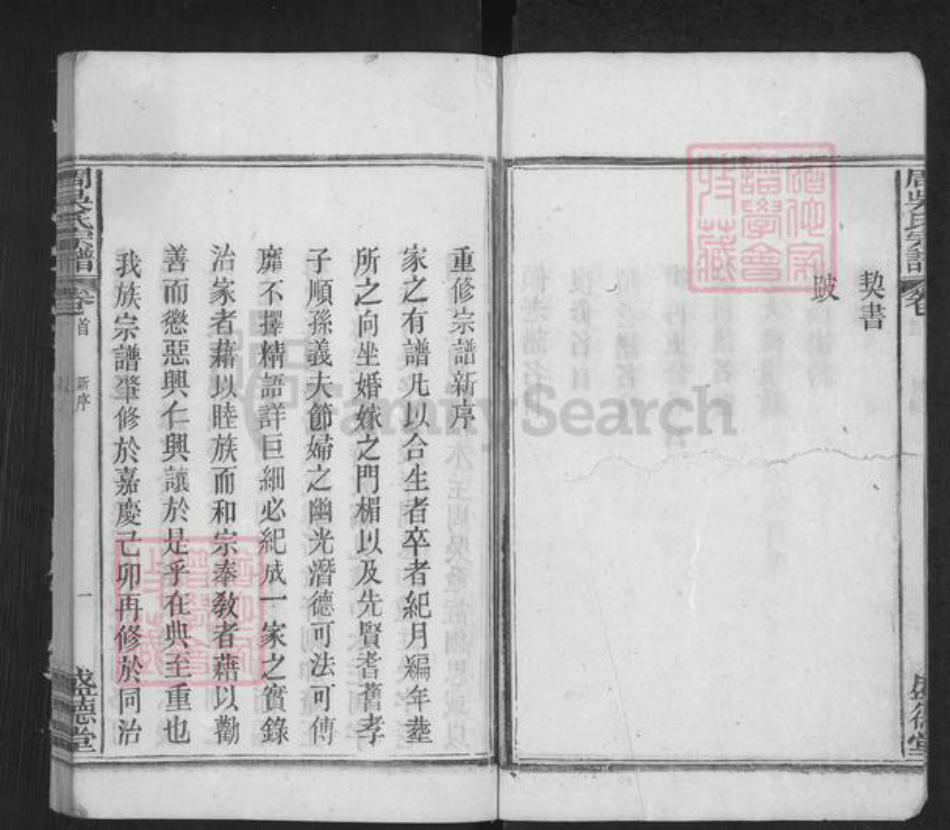 周吳氏宗譜
契書
跋
盛德堂
重修宗譜新序
家之有譜凡以合生者卒者紀月編年塋
所之向坐婚嫁之門楣以及先賢耆舊孝
子順孫義夫節婦之幽光潛德可法可傳
靡不擇精語詳巨細必紀成一家之實錄
治家者藉以睦族而和宗奉敎者藉以勸
善而懲惡興仁興讓於是乎在典至重也
我族宗譜肇修於嘉慶己卯再修於同治
周吳氏宗譜 卷 首 新序 一 盛德堂
FamilySearch